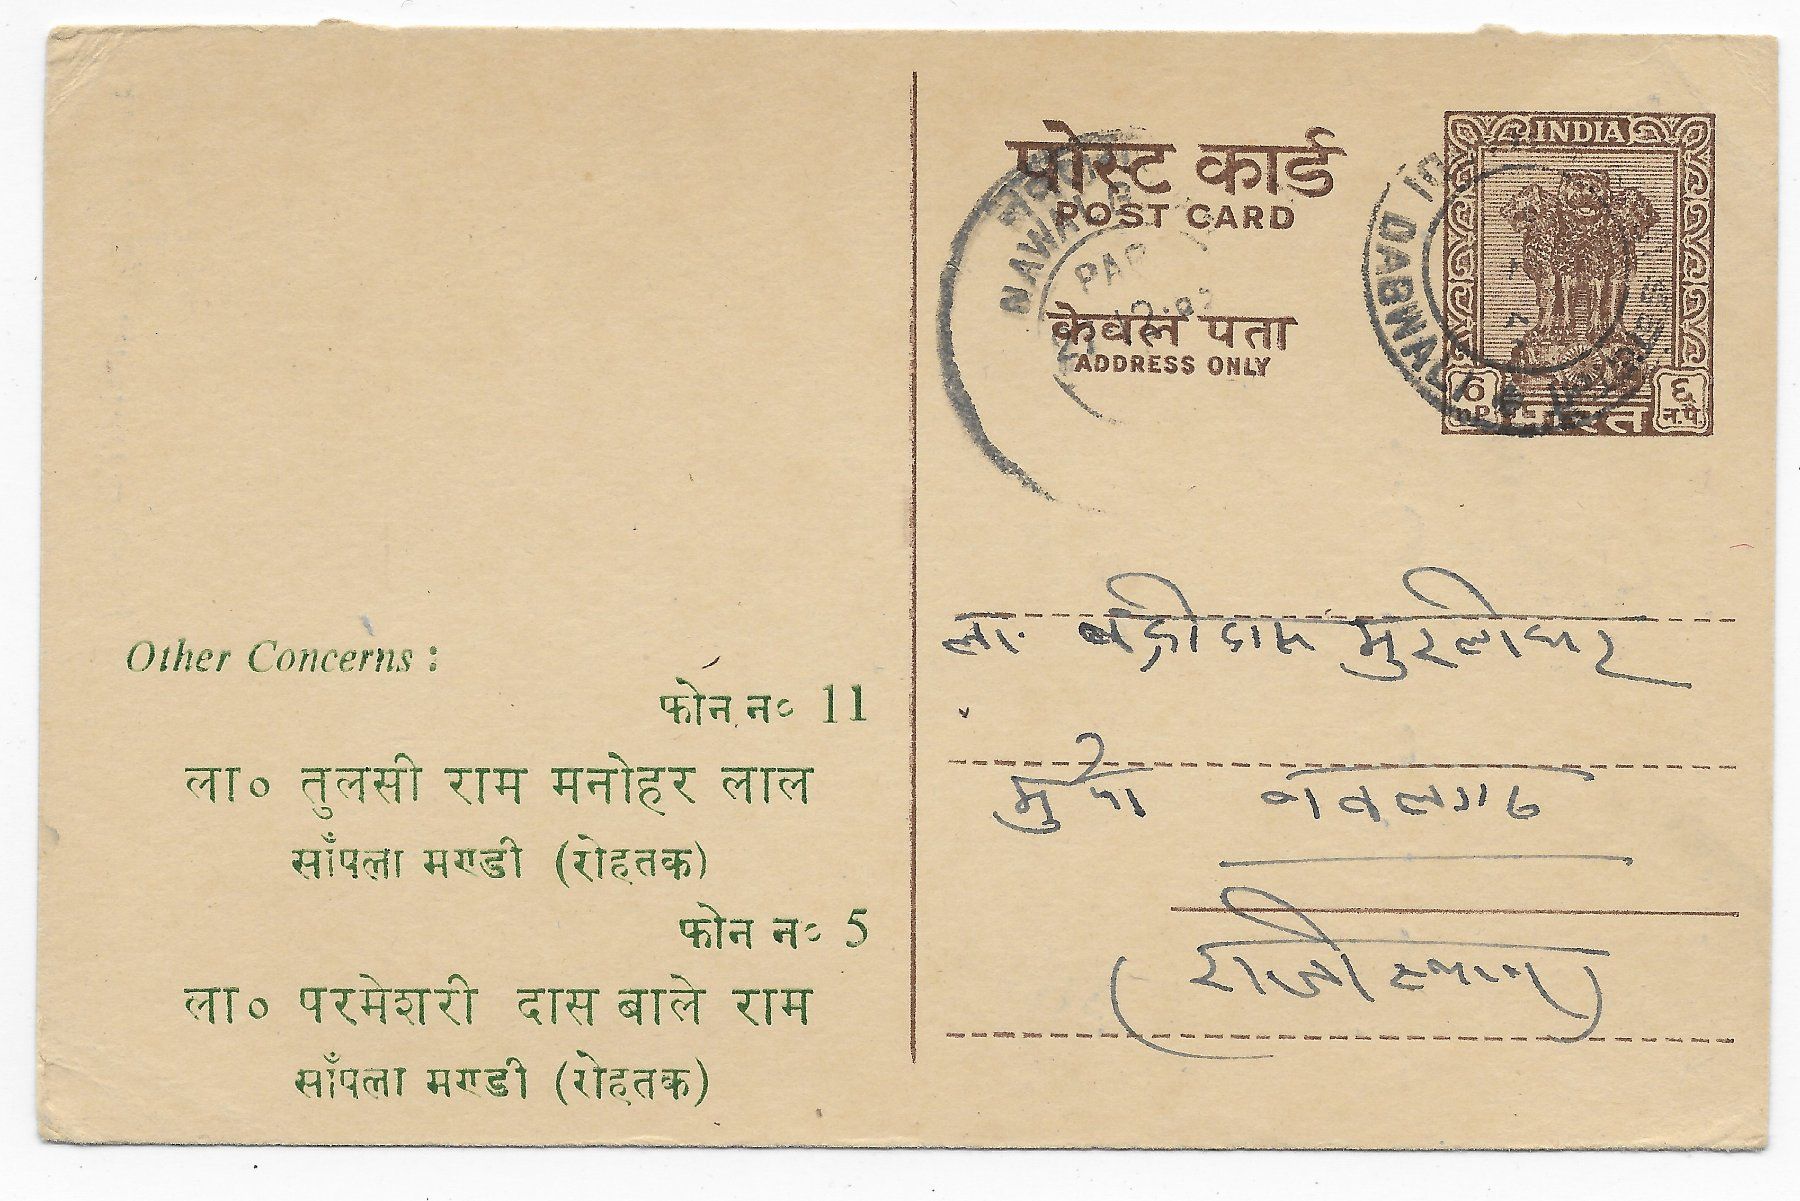 Other Concerns :
फोन न० 11
ला० तुलसी राम मनोहर लाल
साँपला मण्डी (रोहतक)
फोन न० 5
ला० परमेशरी दास बाले राम
साँपला मण्डी (रोहतक)
पोस्ट कार्ड
POST CARD
केवल पता
ADDRESS ONLY
INDIA
6 nP.
भारत
६ न.पै.
DABWALI
NAWALG
ला. बद्रीदास मुरलीधर
मु पो नवलगढ
(राजस्थान)